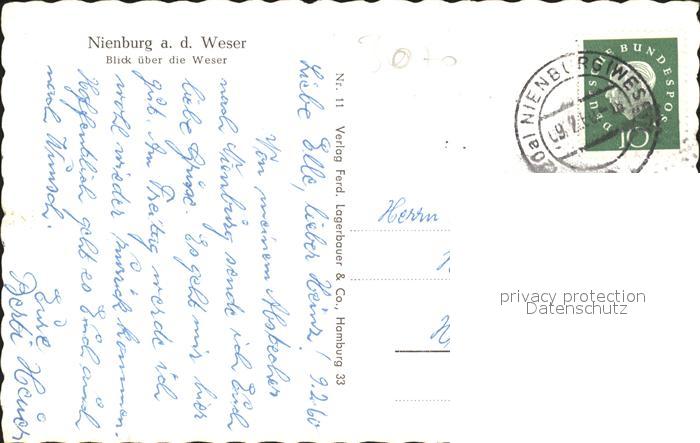 Nienburg a. d. Weser
Blick über die Weser
Liebe Elle, lieber Heinz! 9.2.60
Von meinem Abstecher
nach Nienburg sende ich Euch
liebe Grüsse. Es geht mir hier
gut. Am Freitag werde ich
wohl wieder zurück kommen.
Hoffentlich geht es Euch auch
nach Wunsch.
Eure
Nr. 11 Verlag Ferd. Lagerbauer & Co., Hamburg 33
Herrn
DEUTSCHE BUNDESPOST
10
NIENBURG (WESER)
privacy protection
Datenschutz